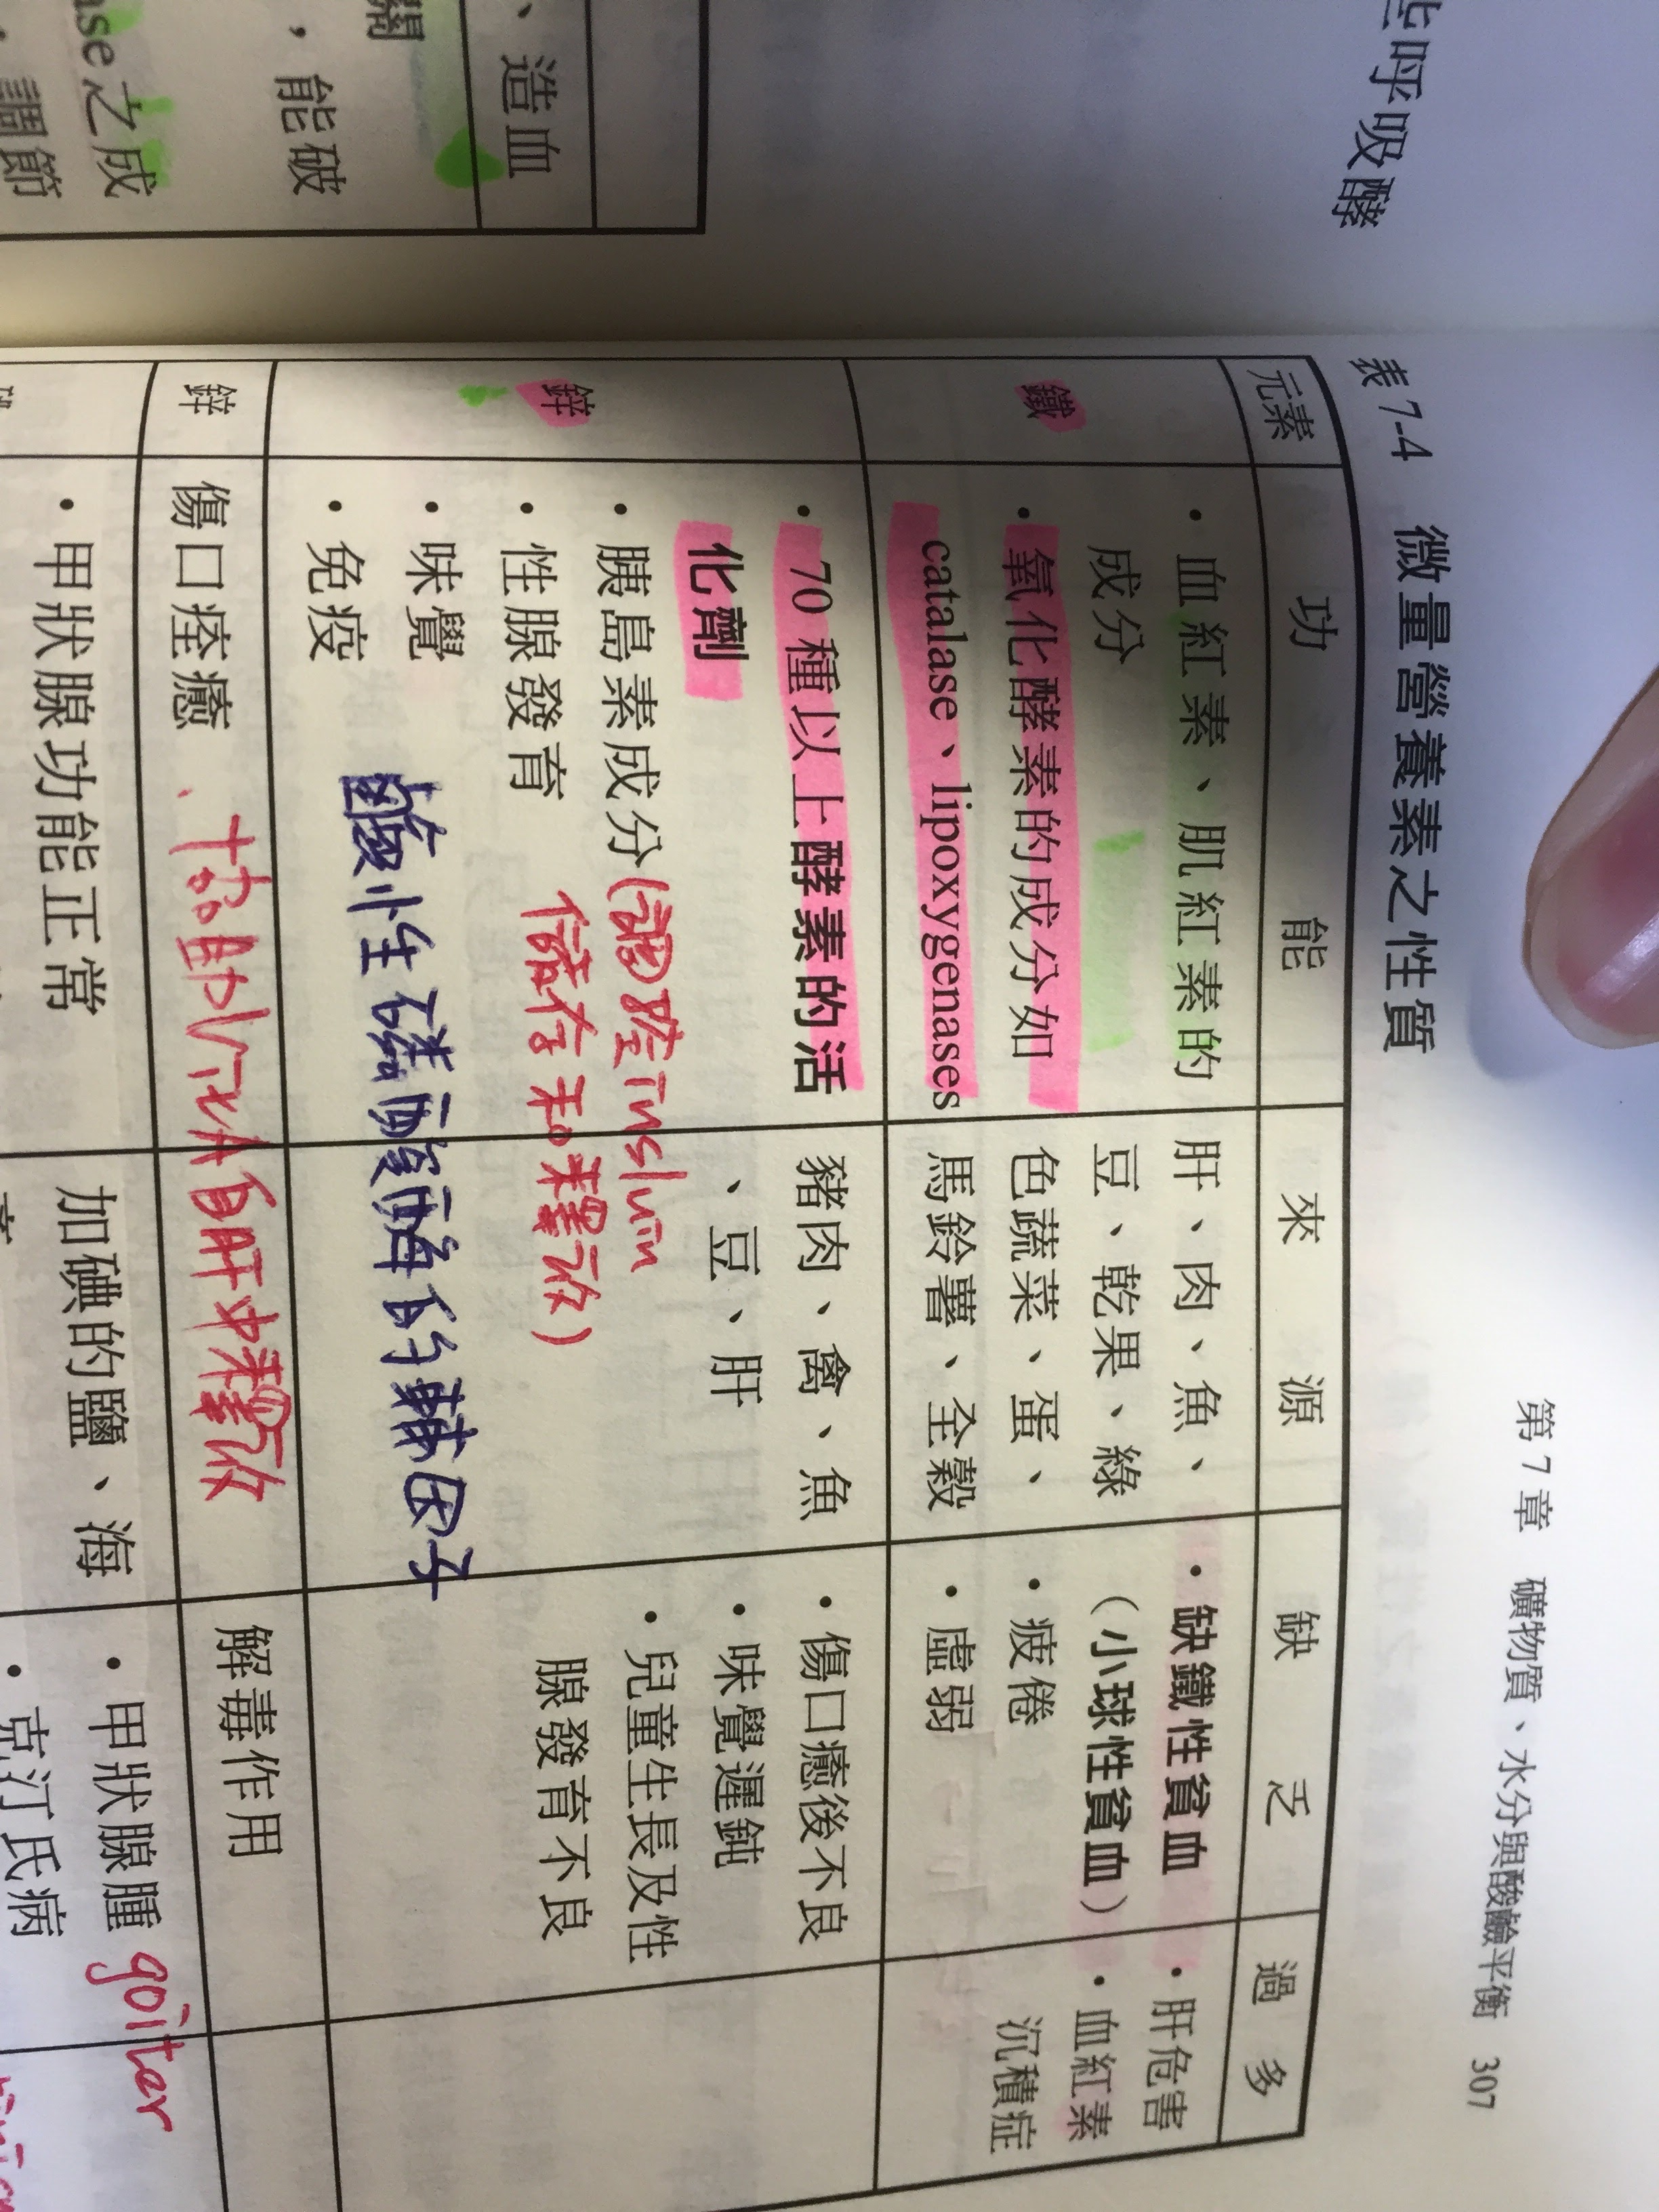 些呼吸酵
、造血
關
，能破
ase之成
，調節
第7章 礦物質、水分與酸鹼平衡 307
表7-4 微量營養素之性質
元素 功能 來源 缺乏 過多
鐵
・血紅素、肌紅素的
成分
・氧化酵素的成分如
catalase、lipoxygenases
肝、肉、魚、
豆、乾果、綠
色蔬菜、蛋、
馬鈴薯、全穀
・缺鐵性貧血
（小球性貧血）
・疲倦
・虛弱
・肝危害
・血紅素
沉積症
鋅
・70種以上酵素的活
化劑
・胰島素成分(調控insluin
儲存和釋放)
・性腺發育
・味覺
・免疫
鹼性磷酸酶的輔因子
豬肉、禽、魚
、豆、肝
・傷口癒後不良
・味覺遲鈍
・兒童生長及性
腺發育不良
鋅
傷口痊癒、
自肝中釋放
解毒作用
・甲狀腺功能正常
加碘的鹽、海
・甲狀腺腫 goiter
・克汀氏病